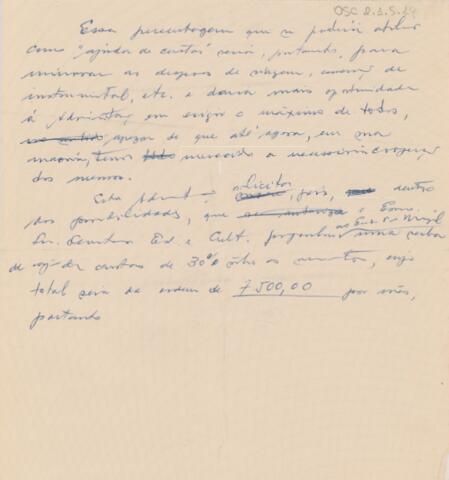 OSC 2.3.5.29
Essa percentagem que se poderia atribuir
como "ajuda de custas" seria, portanto, para
minorar as despesas de viagem, de
instrumental, etc. e daria mais oportunidade
à Administração, em exigir o máximo de todos,
apezar de que até agora, em sua
maioria, temos merecido a necessária cooperação
dos mesmos.
Esta solicita, pois, dentro
das possibilidades, que o Exmo.
Sr. Secretário Ed. e Cult. uma verba
de ajuda custas de 30% sobre os, cujo
total seria da ordem de 7.500,00 por mês,
portanto